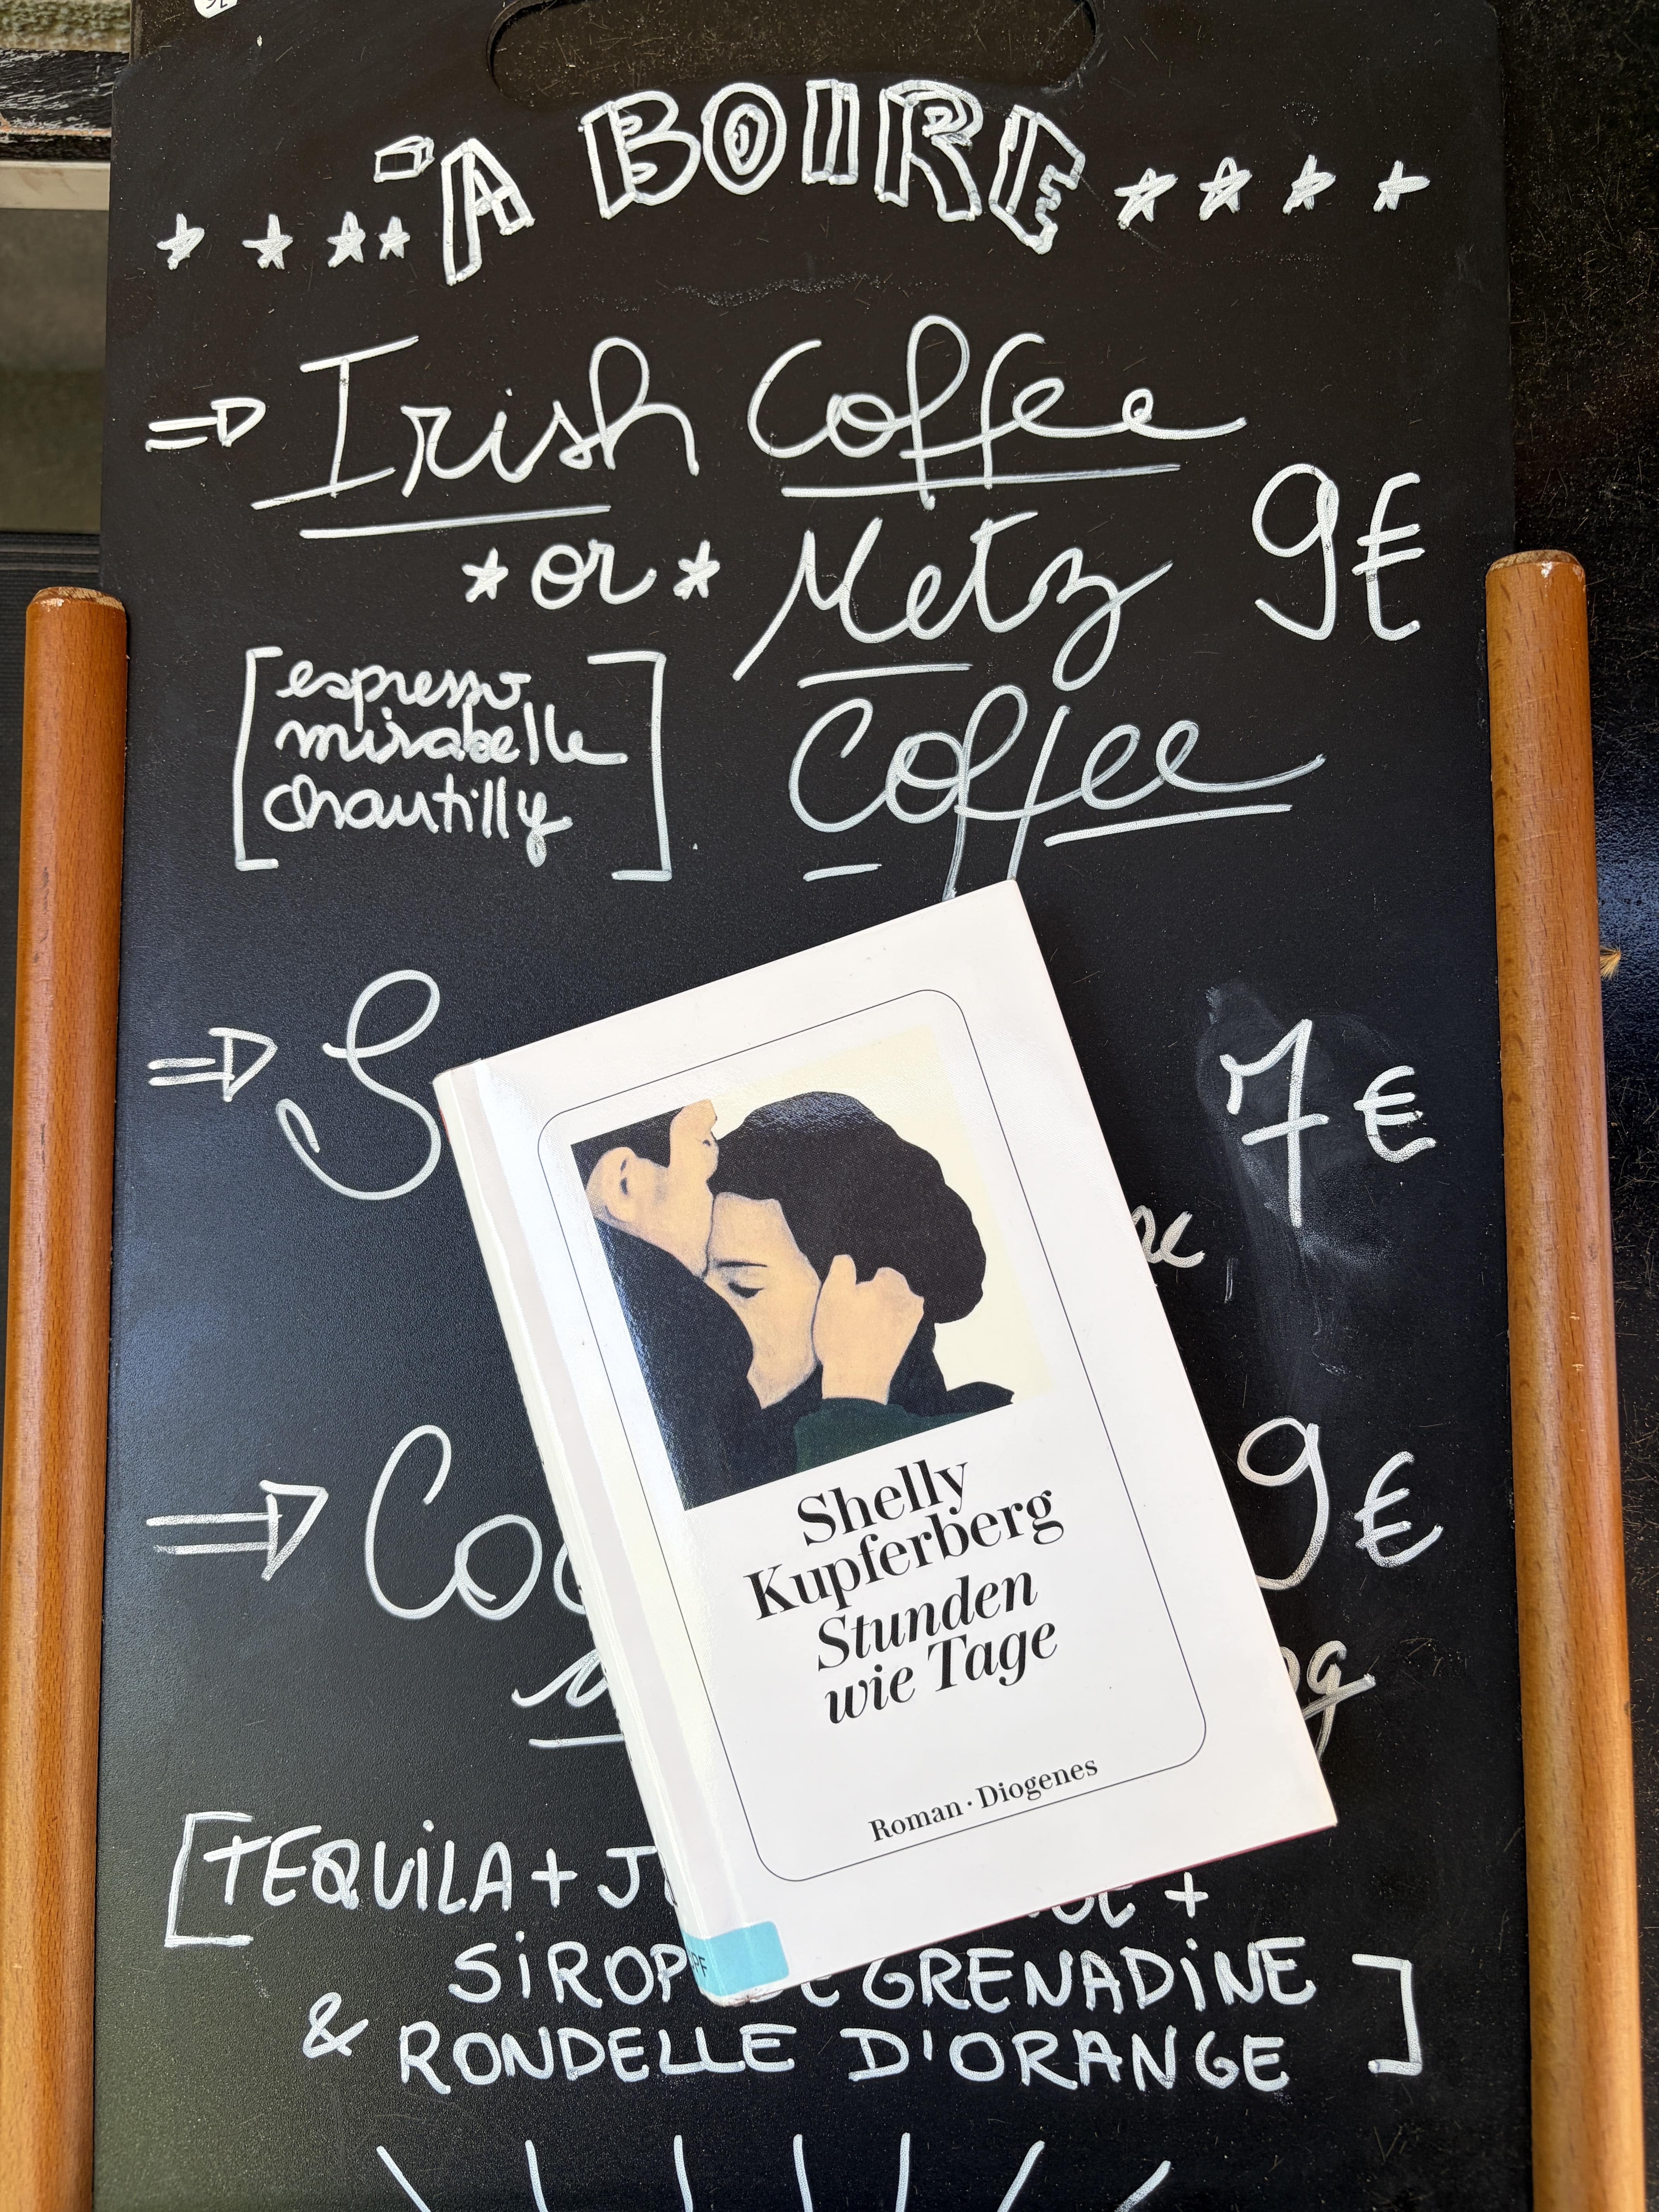 À BOIRE
Irish Coffee
9€
*or* Metz
Coffee
[espresso
mirabelle
chantilly]
7€
9€
Shelly
Kupferberg
Stunden
wie Tage
Roman · Diogenes
[TEQUILA +
+
SIROP GRENADINE
& RONDELLE D'ORANGE]